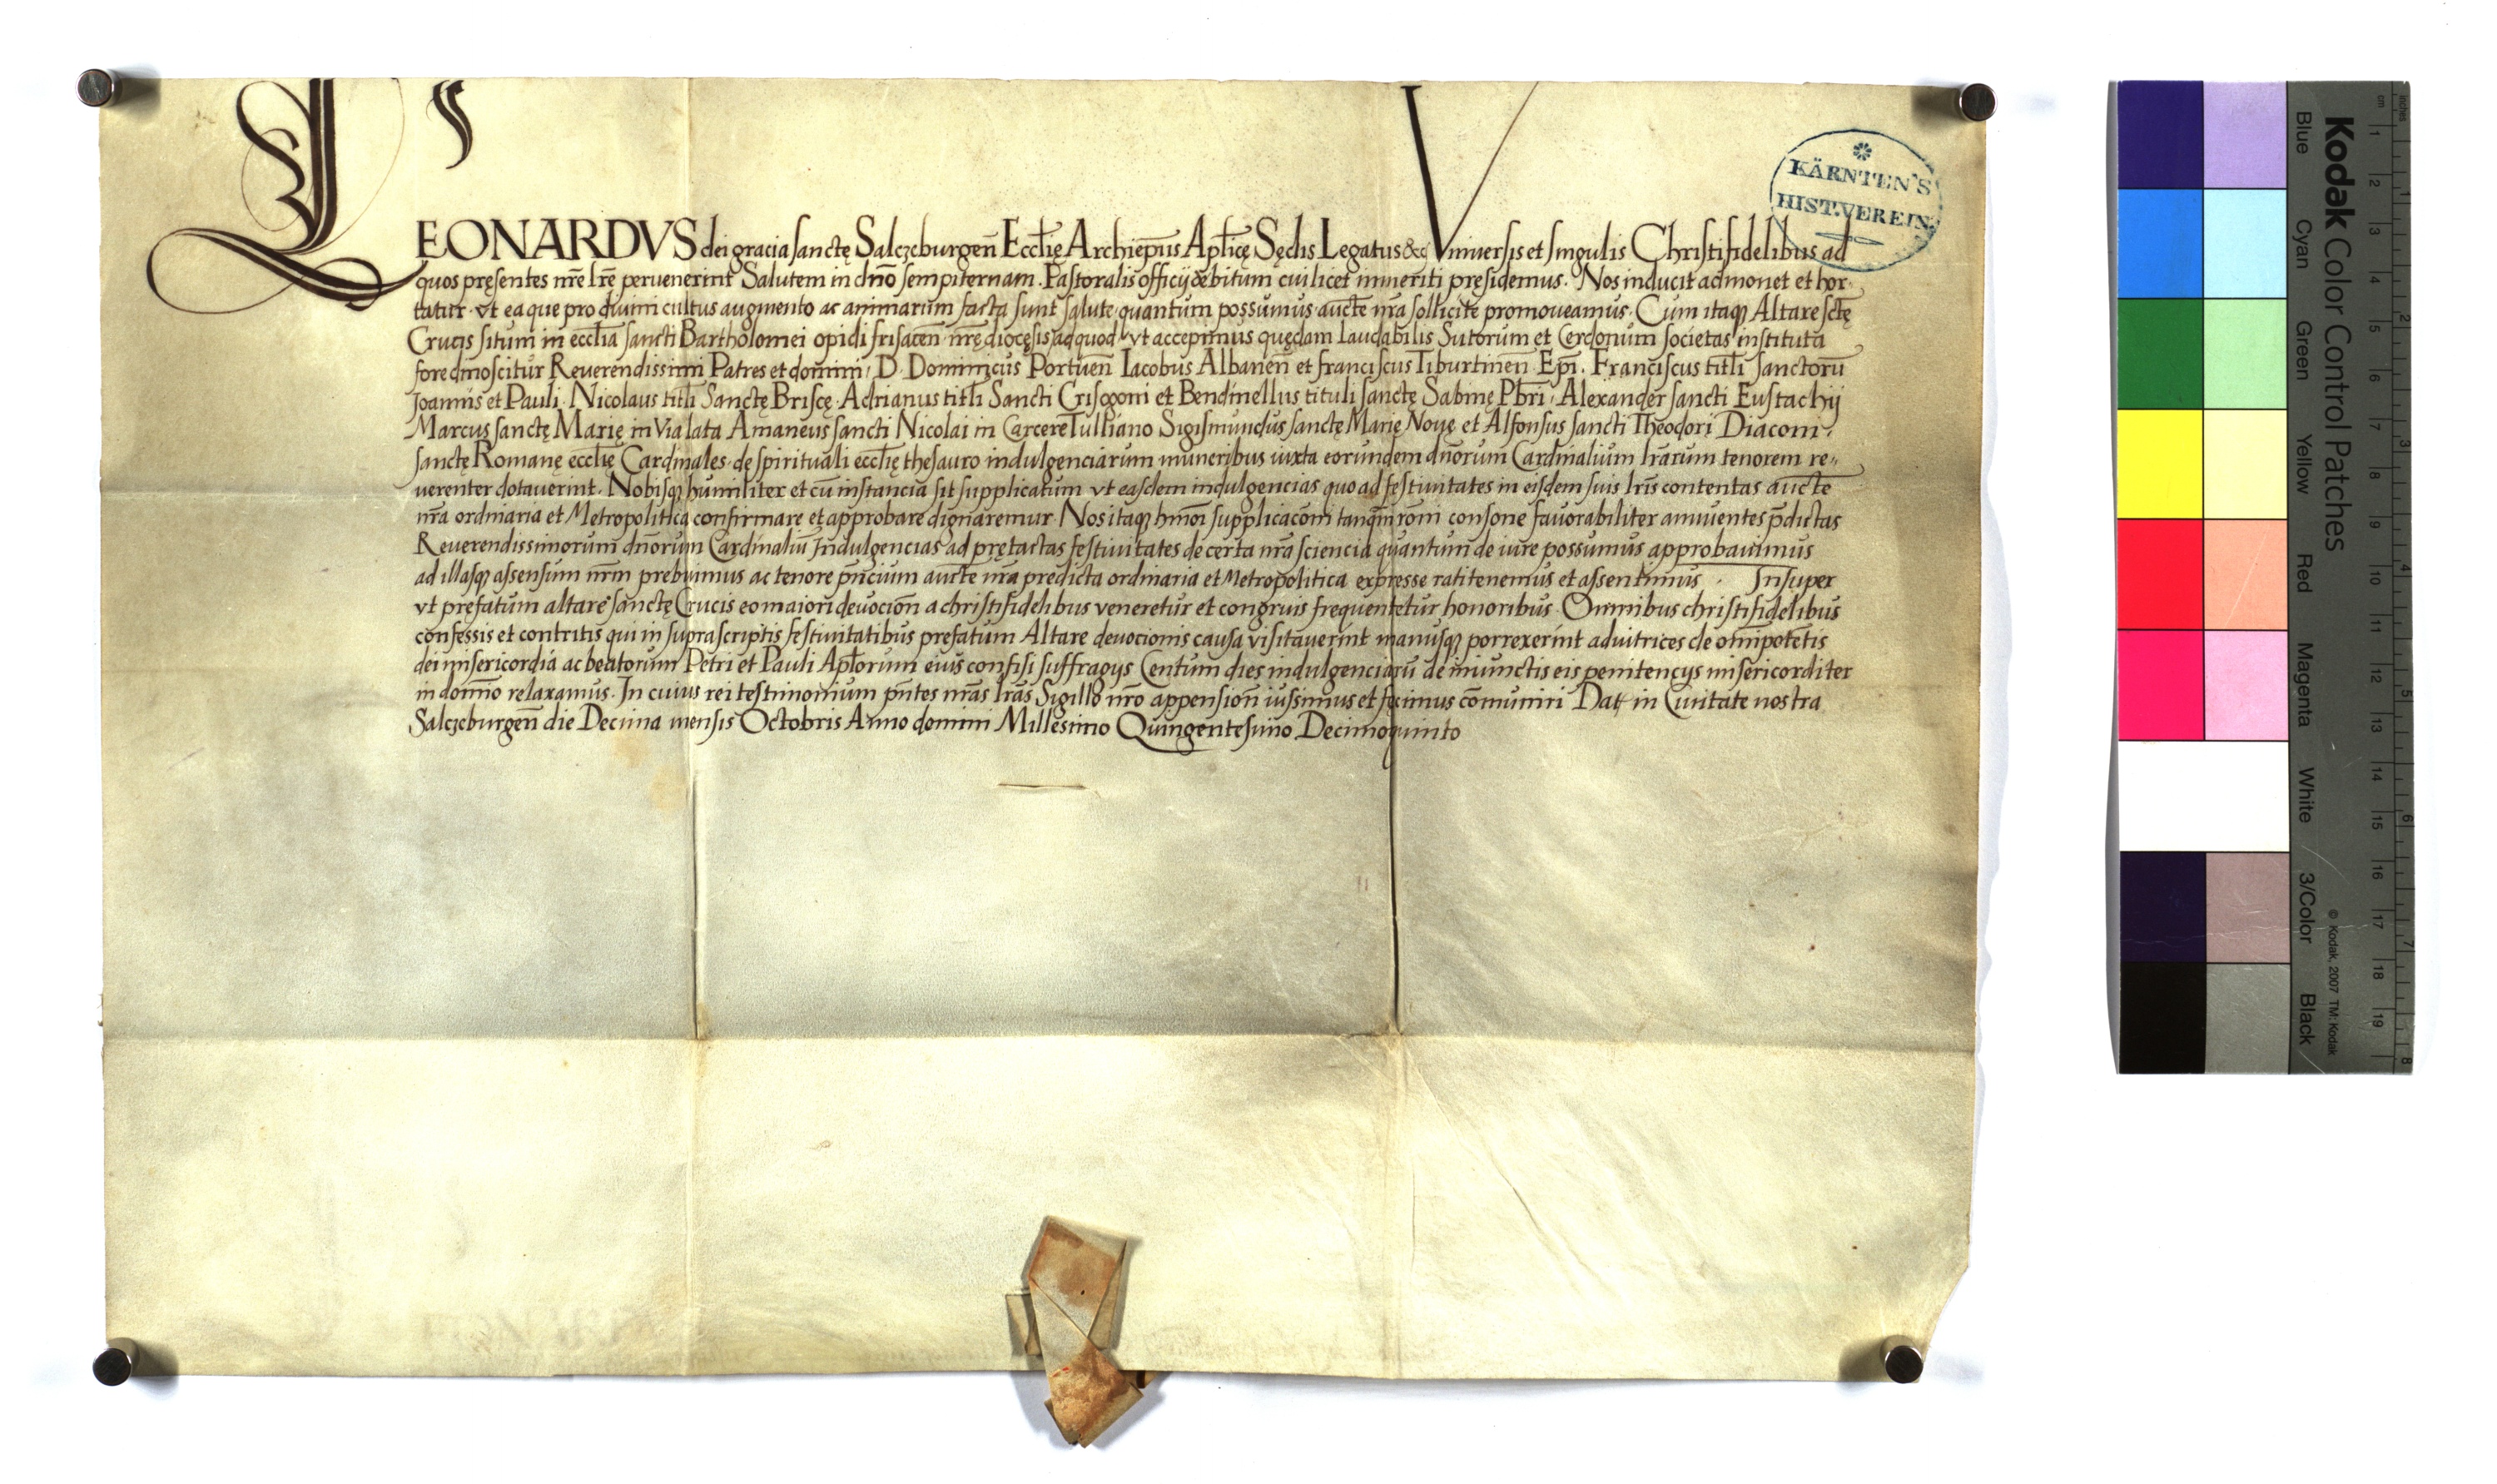 LEONARDVS dei gracia sanctę Salczeburgeñ Eccl̄ię Archiep̄us Apl̄icę Sędis Legatus &c̄ Vniuersis et singulis Christifidelibus ad
quos pręsentes nr̄e lr̄e peruenerint Salutem in dn̄o sempiternam. Pastoralis officij debitum cui licet immeriti pręsidemus. Nos inducit admonet et hor-
tatur. vt ea que pro diuini cultus augmento ac animarum facta sunt salute quantum possumus aucte nr̄a sollicite promoueamus. Cum itaqȝ Altare sctę
Crucis situm in eccl̄ia sancti Bartholomei opidi frisaceñ nr̄ę diocęsis ad quod vt accepimus quędam Laudabilis Sutorum et Cerdonum societas instituta
fore dinoscitur Reuerendissimi Patres et domini, D. Dominicus Portueñ Iacobus Albaneñ et franciscus Tiburtineñ Ep̄i. Franciscus titl̄i sanctorū
Joannis et Pauli. Nicolaus titl̄i Sanctę Briscę. Adrianus titl̄i Sancti Crisogoni et Bendinellus tituli sanctę Sabinę Pbr̄i, Alexander sancti Eustachij
Marcus sanctę Marię in Via lata Amaneus sancti Nicolai in Carcere Tulliano Sigismundus sanctę Marię Nouę et Alfonsus sancti Theodori Diaconi,
sanctę Romanę eccl̄ię Cardinales. de spirituali eccl̄ię thesauro indulgenciarum muneribus iuxta eorundem dn̄orum Cardinalium lr̄arum tenorem re-
uerenter dotauerint. Nobisqȝ humiliter et cū instancia sit supplicatum vt easdem indulgencias quo ad festiuitates in eisdem suis lr̄is contentas aucte
nr̄a ordinaria et Metropolitica confirmare et approbare dignaremur. Nos itaqȝ hm̄oi supplicacōni tanq̄m rōni consone fauorabiliter annuentes p̄dictas
Reuerendissimorum dn̄orum Cardinaliū Indulgencias ad prętactas festiuitates de certa nr̄a sciencia quantum de iure possumus approbauimus
ad illasqȝ assensum nr̄m prebuimus ac tenore pn̄cium aucte nr̄a predicta ordinaria et Metropolitica expresse rati tenemus et assentimus. Insuper
vt prefatum altare sanctę Crucis eo maiori deuocioñ a christifidelibus veneretur et congruis frequentetur honoribus. Omnibus christifidelibus
confessis et contritis qui in suprascriptis festiuitatibus prefatum Altare deuocionis causa visitauerint manusqȝ porrexerint adiutrices de om̄ipotētis
dei misericordia ac beatorum Petri et Pauli Apl̄orum eius confisi suffragijs Centum dies indulgenciarū de iniunctis eis penitencijs misericorditer
in domīo relaxamus. In cuius rei testimonium pn̄tes nr̄as lr̄as Sigillo nr̄o appensioñ iussimus et fecimus cōmuniri Dat̄ in Ciuitate nostra
Salczeburgeñ die Decima mensis Octobris Anno domini Millesimo Quingentesimo Decimoquinto
KÄRNTEN'S
HIST. VEREIN.
Kodak Color Control Patches
Blue Cyan Green Yellow Red Magenta White 3/Color Black
© Kodak, 2007 TM: Kodak
cm 1 2 3 4 5 6 7 8 9 10 11 12 13 14 15 16 17 18 19
inches 1 2 3 4 5 6 7 8